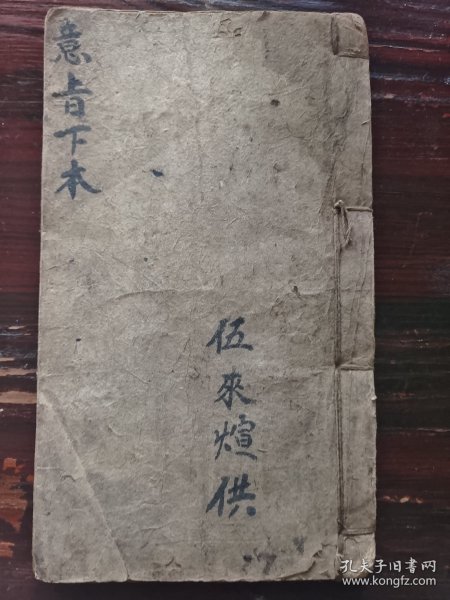 意旨下本
伍來煊供
孔夫子旧书网
www.kongfz.com